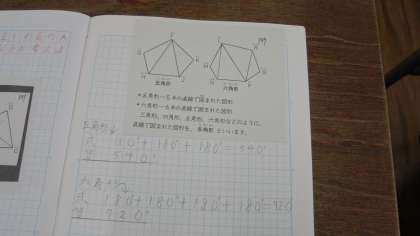 五角形
六角形
*五角形…5本の直線で囲まれた図形
*六角形…6本の直線で囲まれた図形
三角形、四角形、五角形、六角形などのように、
直線で囲まれた図形を、多角形 といいます。
五角形
式 180°+180°+180°=540°
答 540°
六角形
式 180°+180°+180°+180°=720
答 720°